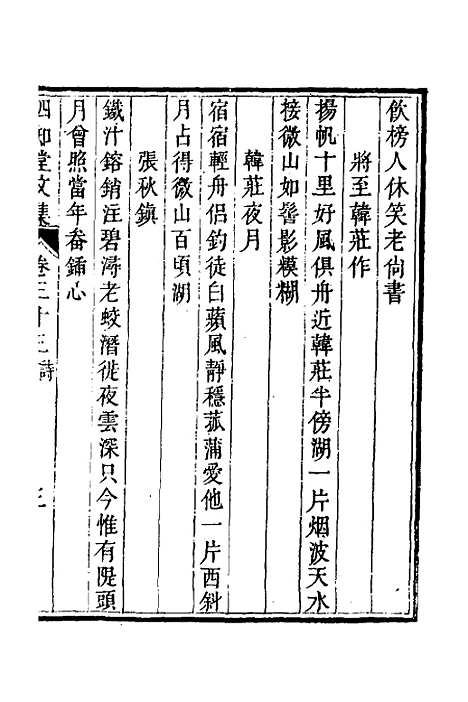 飲榜人休笑老尙書
將至韓莊作
揚帆十里好風俱舟近韓莊半傍湖一片烟波天水
接微山如髻影模糊
韓莊夜月
宿宿輕舟侶釣徒白蘋風靜穩菰蒲愛他一片西斜
月占得微山百頃湖
張秋鎭
鐵汁鎔銷注碧潯老蛟潛徙夜雲深只今惟有隄頭
月曾照當年畚鍤心
四知堂文集 卷三十三 詩 三